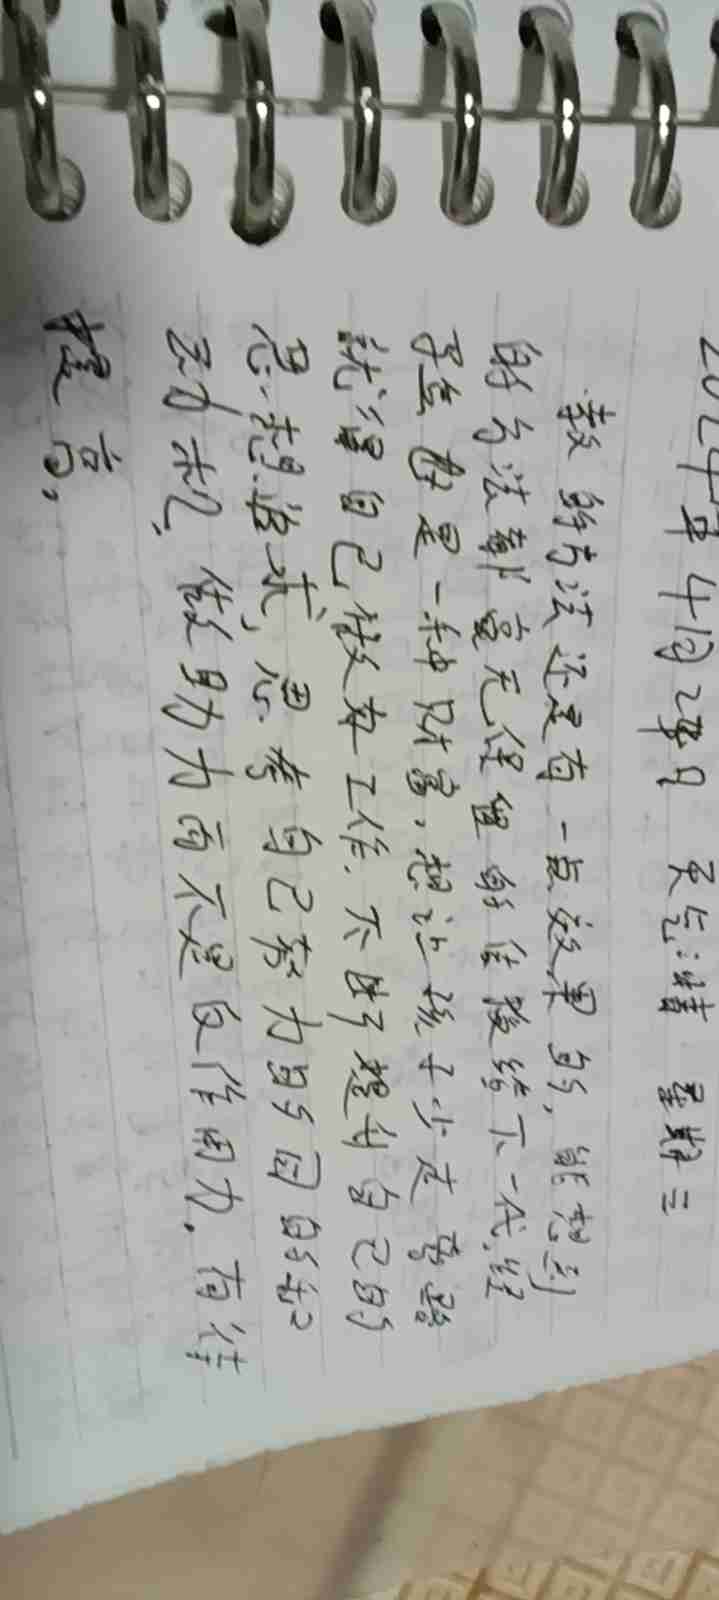 年 午 月 日 天气:晴 星期三
教的方法还是有一点效果的,能想到
的方法都毫无保留的传授给下一代,经
验是一种财富,想让孩子少走弯路
就得自己做好工作.不断提升自己的
思想追求,思考自己努力的目的和
动机,做助力而不是反作用力.有待
提高,